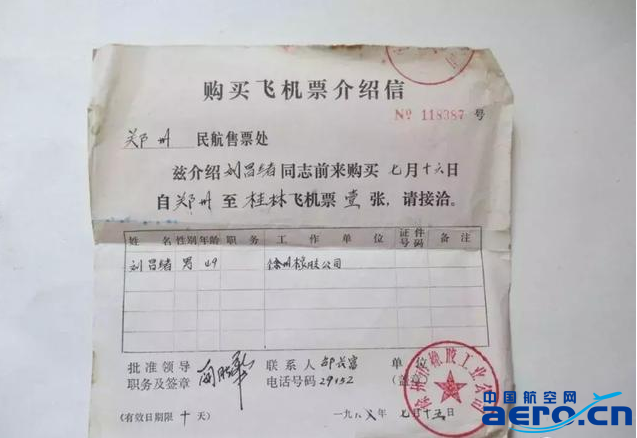 购买飞机票介绍信
№ 118387 号
郑州 民航售票处
兹介绍刘昌绪同志前来购买七月十六日
自郑州至桂林飞机票壹张，请接洽。
姓名 性别 年龄 职务 工作单位 证件号码 备注
刘昌绪 男 49 徐州橡胶公司
批准领导
职务及签章
联系人
电话号码 29152
单位
(盖章)
橡胶工业公司
(有效日期限十天)
一九八 年七月十五日
中国航空网
aero.cn